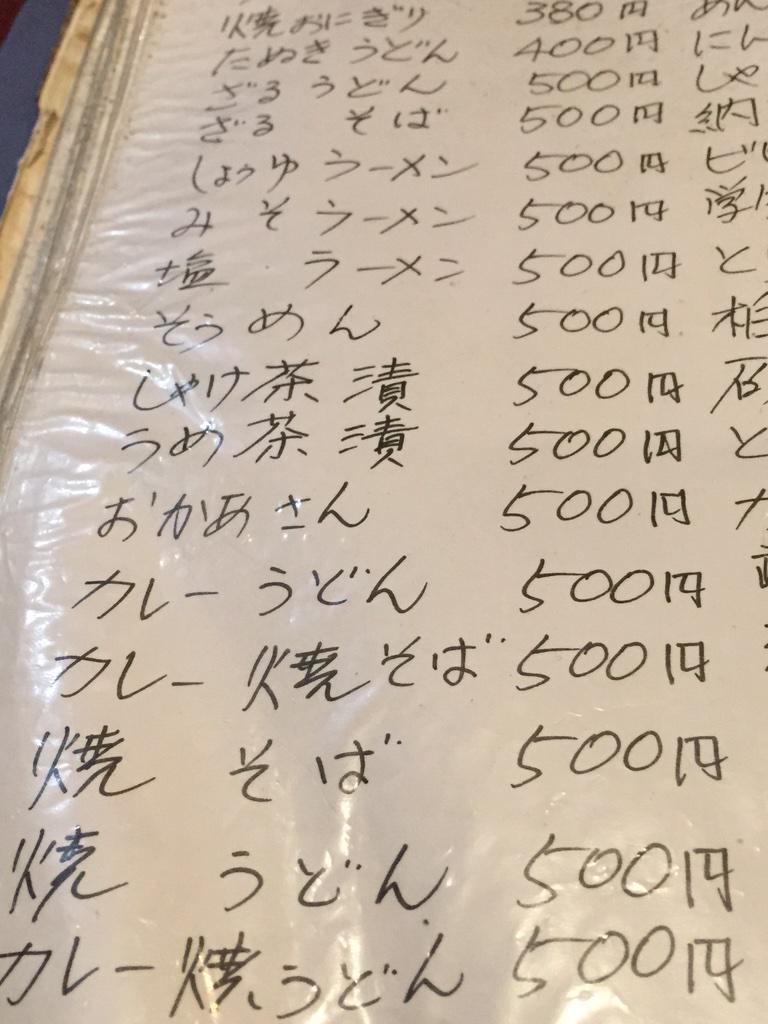 焼おにぎり 380円 めん
たぬきうどん 400円 にん
ざるうどん 500円 しゃ
ざる そば 500円 納
しょうゆラーメン 500円 ビ
みそラーメン 500円 学
塩 ラーメン 500円 と
そうめん 500円
しゃけ茶漬 500円
うめ茶漬 500円 と
おかあさん 500円 カ
カレーうどん 500円
カレー焼そば 500円
焼 そば 500円
焼 うどん 500円
カレー焼うどん 500円